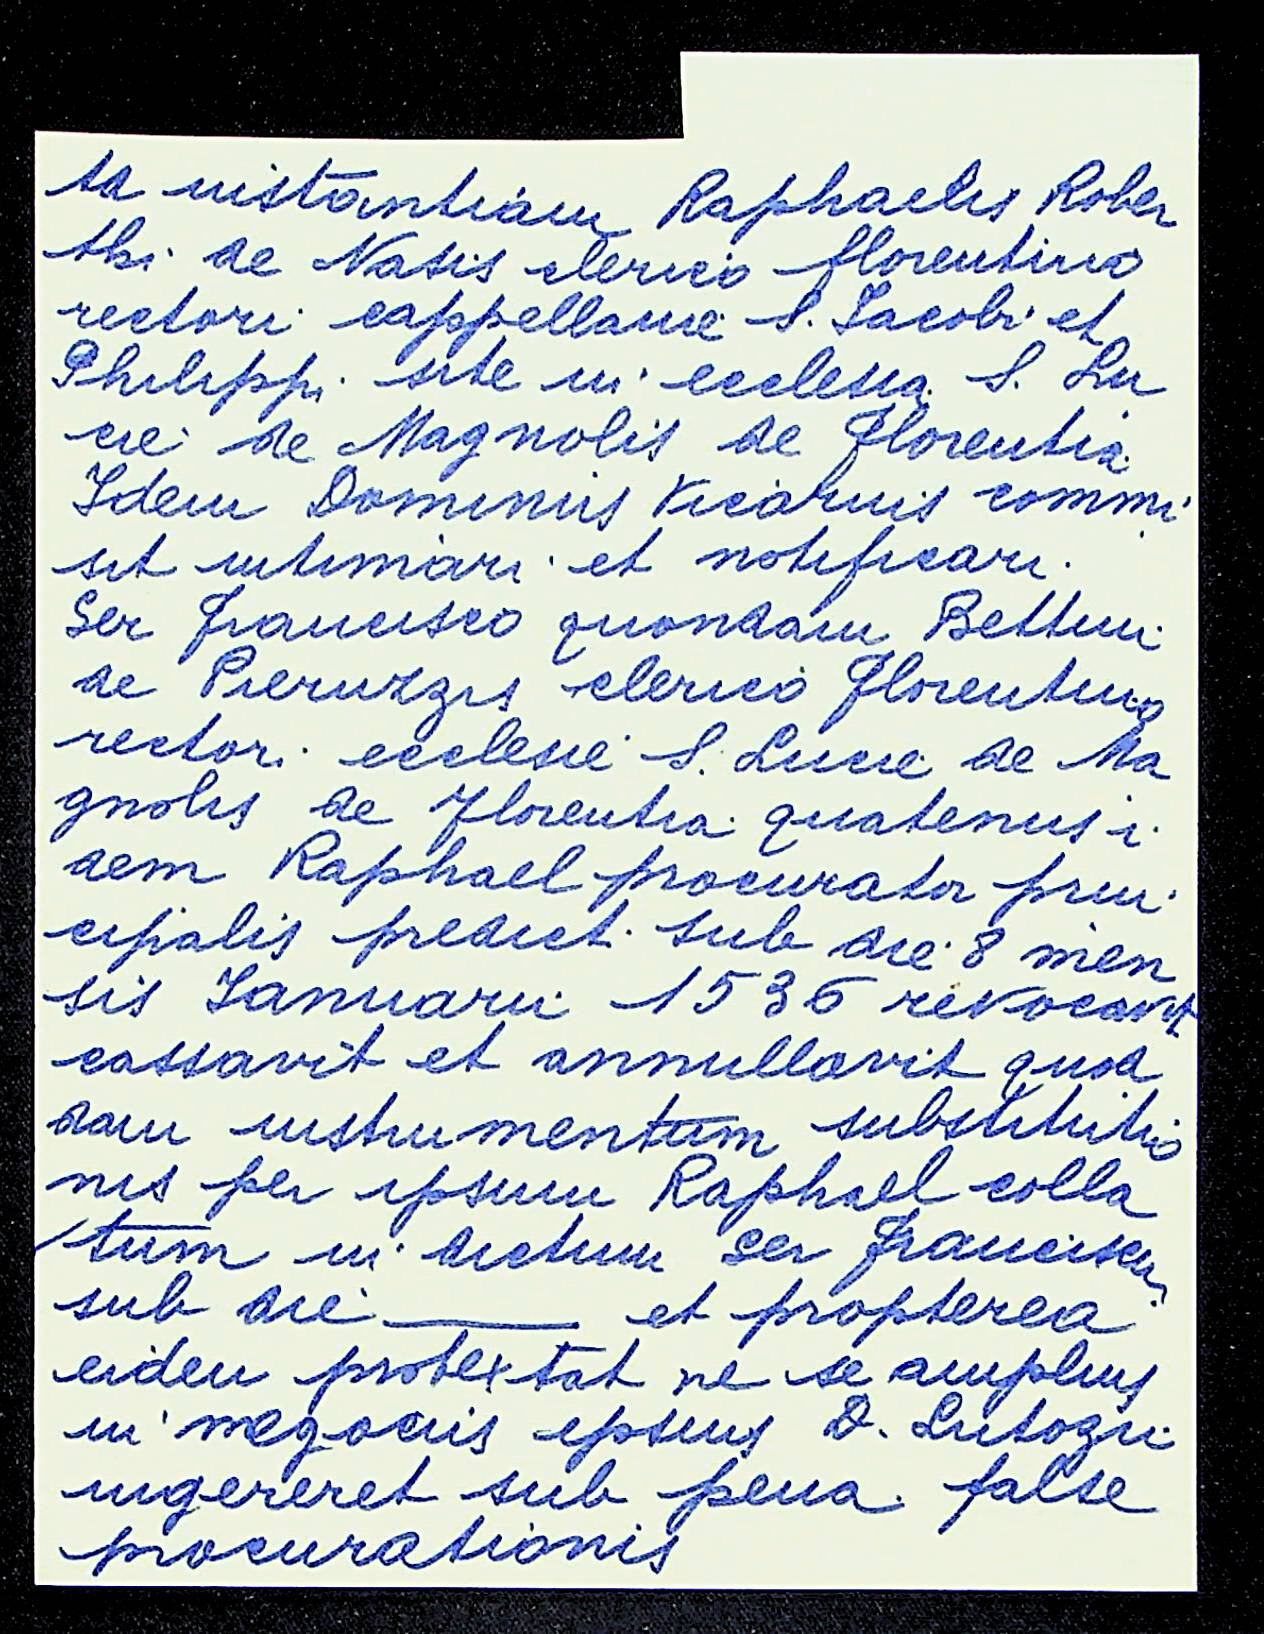 ta instantiam Raphaelis Rober
thi de Nasis clerico florentino
rectori cappellanie S. Iacobi et
Philippi site in ecclesia S. Lu
cie de Magnolis de Florentia
Idem Dominus Vicarius commi
sit intimari et notificari.
Ser Francisco quondam Bettini
de Pieruzzis clerico Florentino
rectori ecclesie S. Lucie de Ma
gnolis de Florentia quatenus i
dem Raphael procurator prin
cipalis predict. sub die 8 men
sis Ianuarii 1536 revocavit
cassavit et annullavit quod
dam instrumentum substitutio
nis per ipsum Raphael colla
tum in dictum Ser Franciscum
sub die ______ et propterea
eidem protextat ne se amplius
in negociis ipsius D. Lutozii
ingereret sub pena false
procurationis